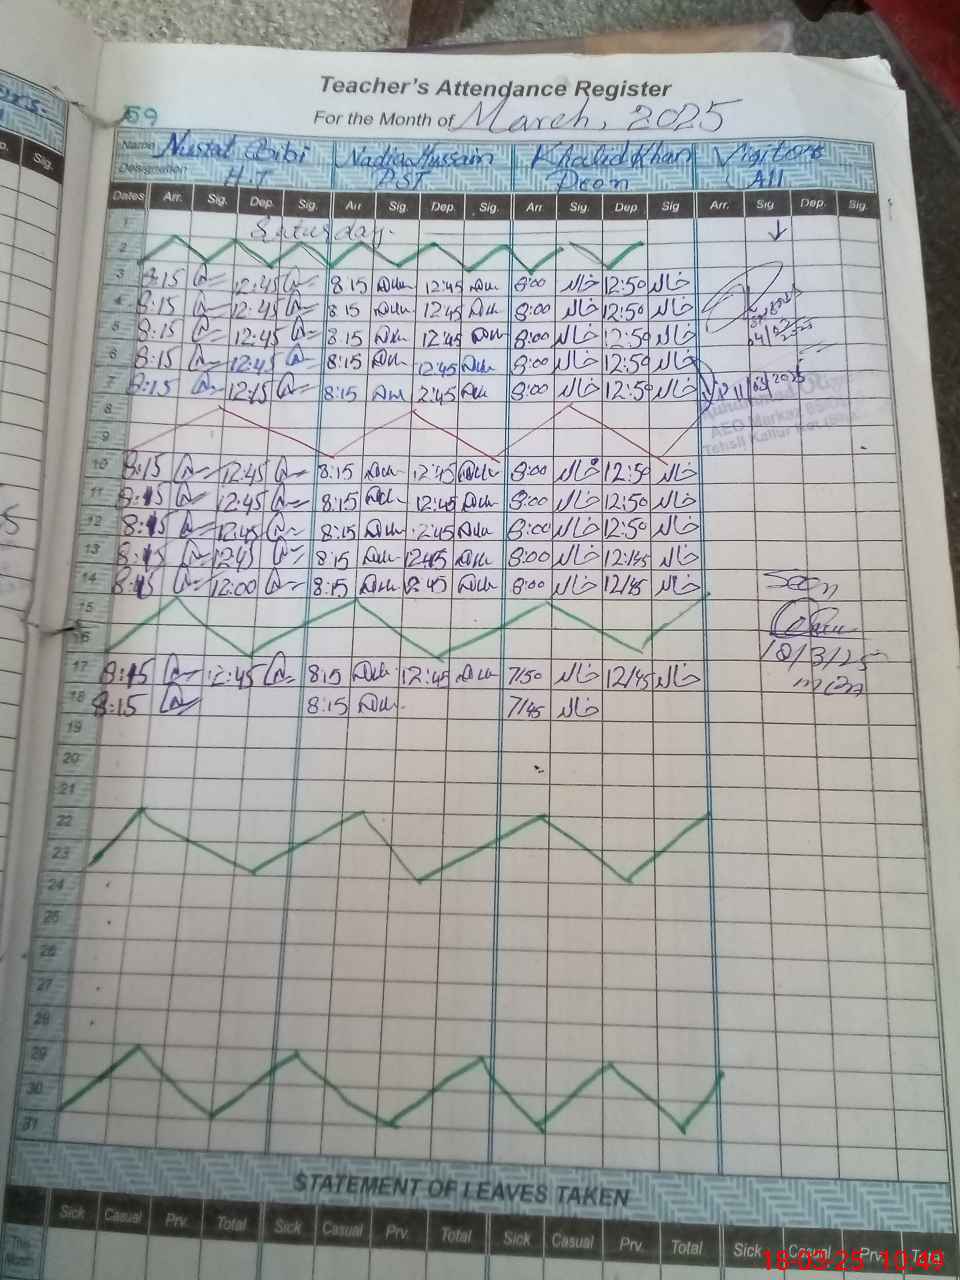 Teacher's Attendance Register
59
For the Month of March, 2025
Name Nusrat Bibi Nadia Hussain Khalid Khan Visitors
Designation H.T PST Peon All
Dates Arr. Sig. Dep. Sig. Arr Sig. Dep. Sig. Arr Sig. Dep Sig Arr. Sig Dep. Sig.
1 Saturday.
2
3 8:15 12:45 8:15 12:45 8:00 خالد 12:50 خالد
4 8:15 12:45 8:15 12:45 8:00 خالد 12:50 خالد
5 8:15 12:45 8:15 12:45 8:00 خالد 12:50 خالد
6 8:15 12:45 8:15 12:45 8:00 خالد 12:50 خالد
7 8:15 12:45 8:15 2:45 8:00 خالد 12:50 خالد
8
AEO Markaz
Tehsil
9
10 8:15 12:45 8:15 12:45 8:00 خالد 12:50 خالد
11 8:15 12:45 8:15 12:45 8:00 خالد 12:50 خالد
12 8:15 12:45 8:15 12:45 8:00 خالد 12:50 خالد
13 8:15 12:45 8:15 12:45 8:00 خالد 12:45 خالد
14 8:15 12:00 8:15 12:45 8:00 خالد 12/45 خالد
Seen
15
16
18/3/25
17 8:15 12:45 8:15 12:45 7/50 خالد 12/45 خالد
18 8:15 8:15 7/45 خالد
19
20
21
22
23
24
25
26
27
28
29
30
31
STATEMENT OF LEAVES TAKEN
Sick Casual Prv. Total Sick Casual Prv. Total Sick Casual Prv. Total Sick Casual Prv. Total
This Month
18-03-25 10:49